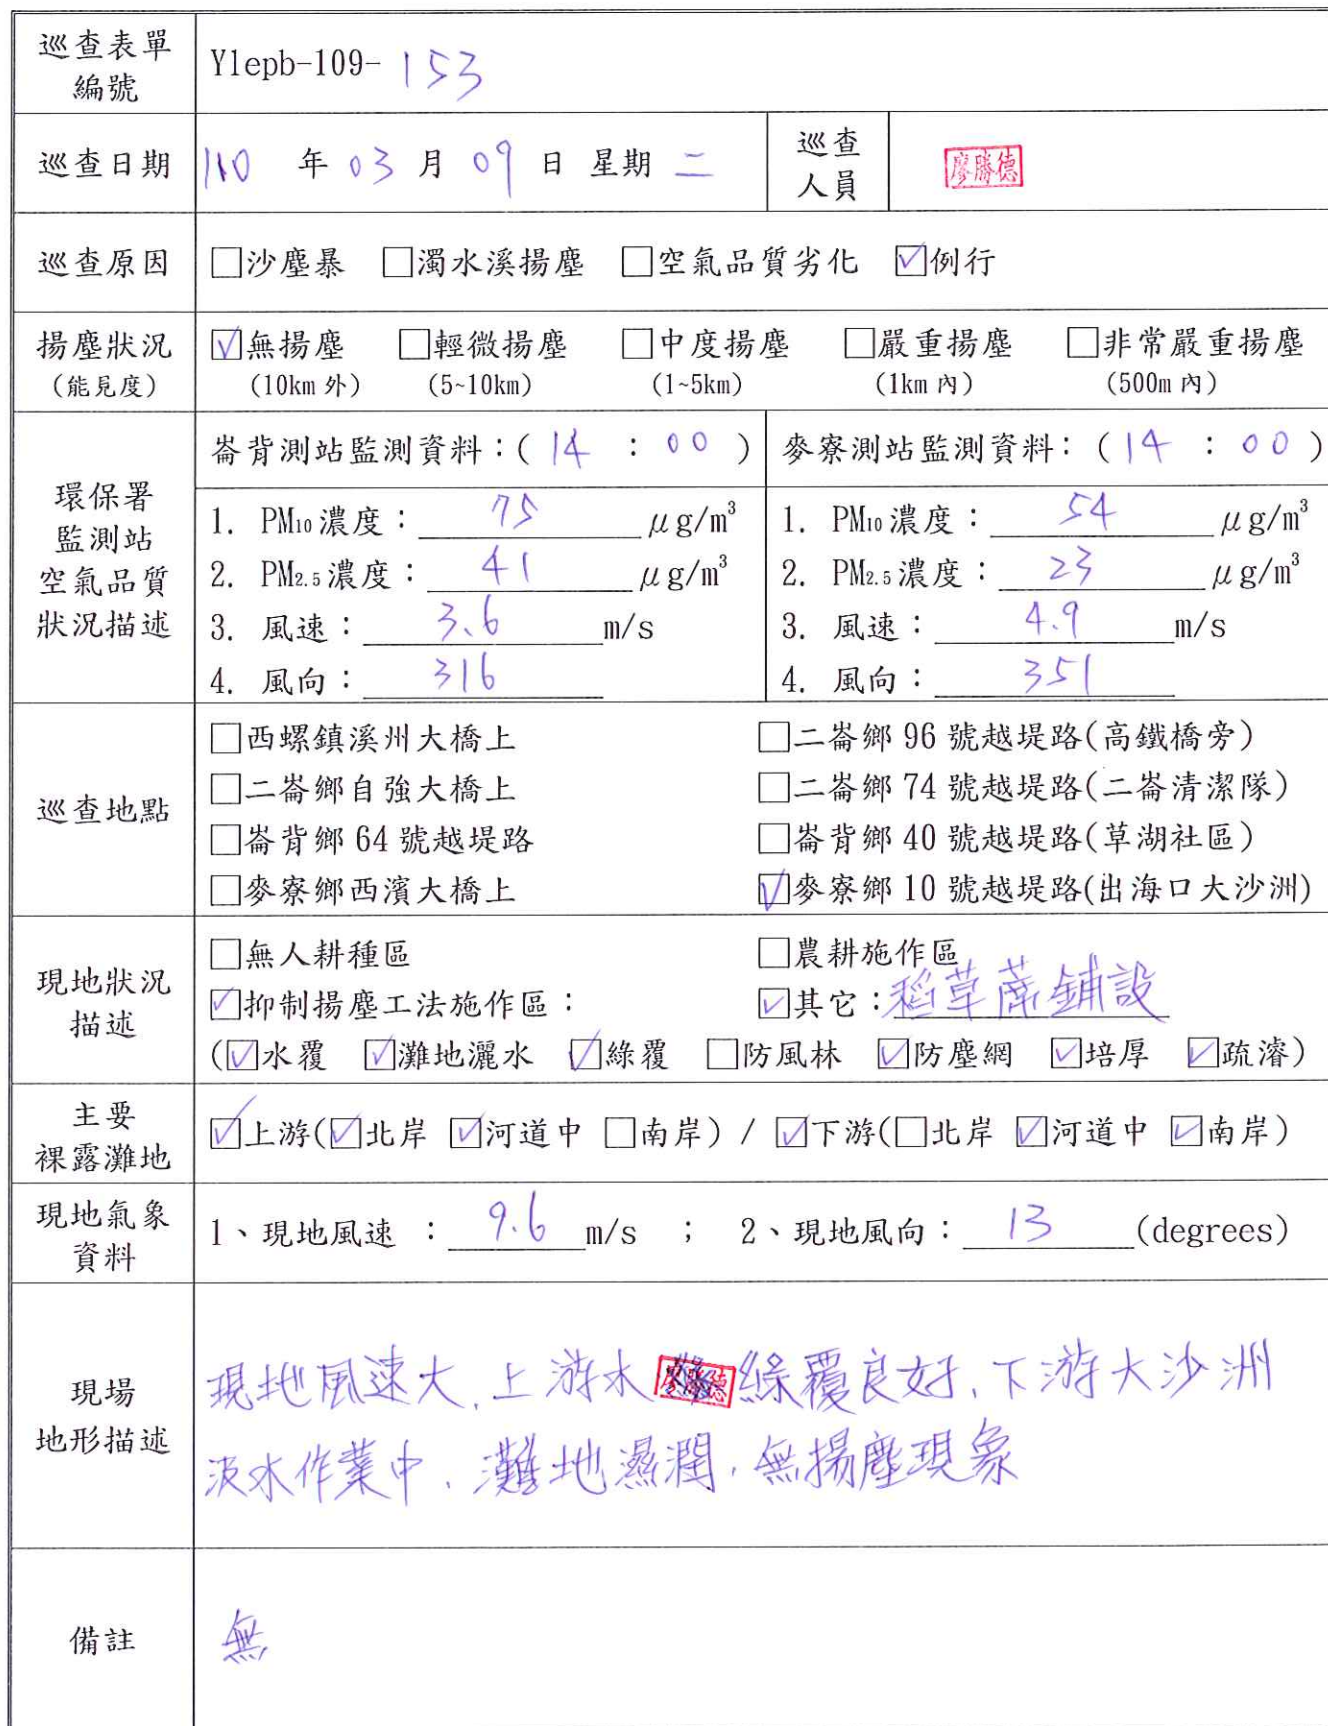 巡查表單
編號
Ylepb-109-153
巡查日期 110 年 03 月 09 日 星期 二 巡查人員 廖勝德
巡查原因 □沙塵暴 □濁水溪揚塵 □空氣品質劣化 ☑例行
揚塵狀況 ☑無揚塵 □輕微揚塵 □中度揚塵 □嚴重揚塵 □非常嚴重揚塵
(能見度) (10km 外) (5~10km) (1~5km) (1km 內) (500m 內)
環保署
監測站
空氣品質
狀況描述
崙背測站監測資料：( 14 : 00 )
1. PM10 濃度：75 μg/m³
2. PM2.5 濃度：41 μg/m³
3. 風速：3.6 m/s
4. 風向：316
麥寮測站監測資料：( 14 : 00 )
1. PM10 濃度：54 μg/m³
2. PM2.5 濃度：23 μg/m³
3. 風速：4.9 m/s
4. 風向：351
巡查地點
□西螺鎮溪州大橋上 □二崙鄉 96 號越堤路(高鐵橋旁)
□二崙鄉自強大橋上 □二崙鄉 74 號越堤路(二崙清潔隊)
□崙背鄉 64 號越堤路 □崙背鄉 40 號越堤路(草湖社區)
□麥寮鄉西濱大橋上 ☑麥寮鄉 10 號越堤路(出海口大沙洲)
現地狀況
描述
□無人耕種區 □農耕施作區
☑抑制揚塵工法施作區： ☑其它：稻草蓆鋪設
(☑水覆 ☑灘地灑水 ☑綠覆 □防風林 ☑防塵網 ☑培厚 ☑疏濬)
主要
裸露灘地
☑上游(☑北岸 ☑河道中 □南岸) / ☑下游(□北岸 ☑河道中 ☑南岸)
現地氣象
資料
1、現地風速 ：9.6 m/s ； 2、現地風向：13 (degrees)
現場
地形描述
現地風速大,上游水 廖勝德 綠覆良好,下游大沙洲
汲水作業中,灘地濕潤,無揚塵現象
備註 無